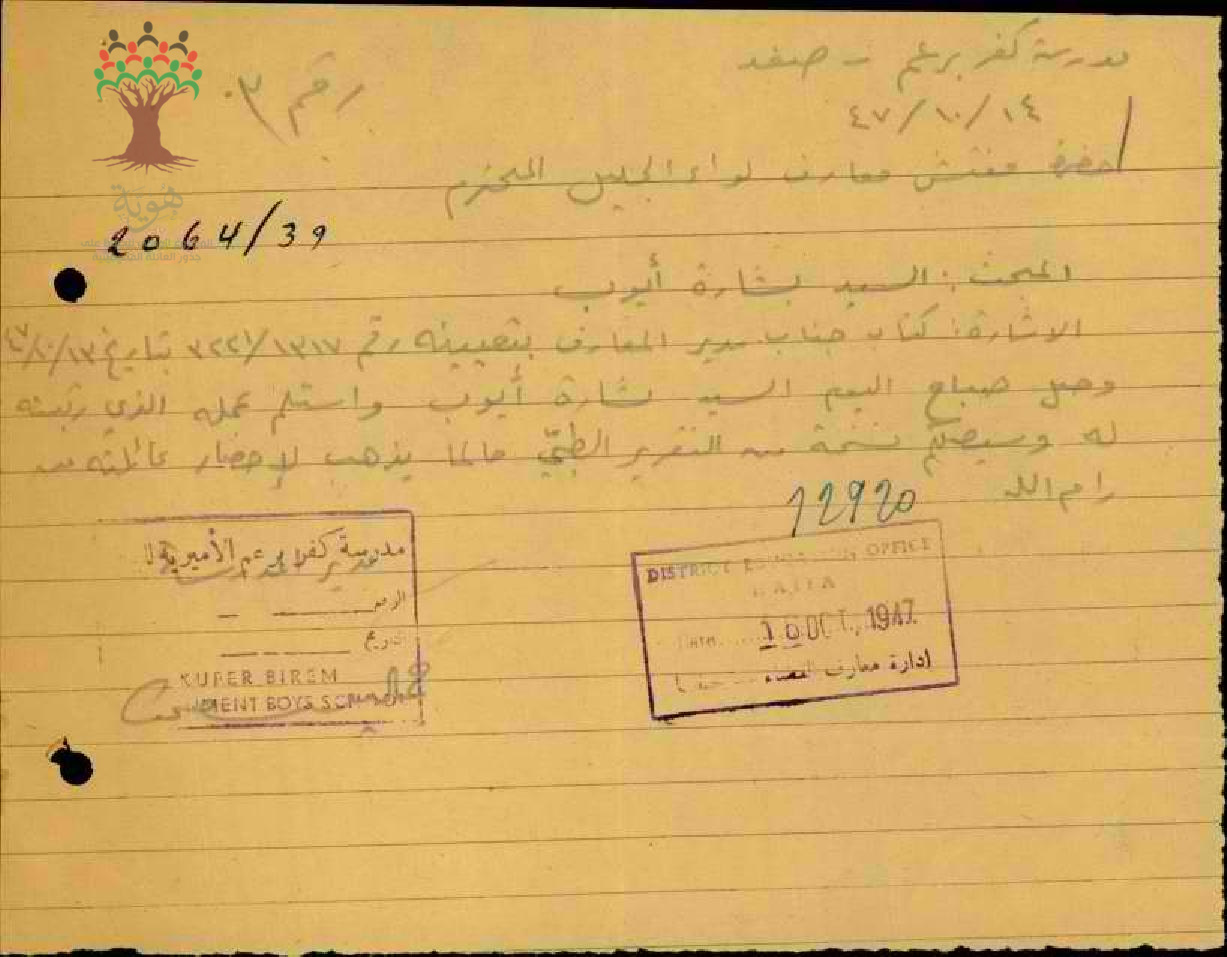 مدرسة كفر برعم - صفد
رقم ٣٠
٤٧/١٠/١٤
حضرة مفتش معارف لواء الجليل المحترم
هوية
2064/39
المبحث: السيد بشارة أيوب
الاشارة: كتاب جناب مدير المعارف بتعيينه رقم ٣٢٢١/١٣١٧ بتاريخ ٤٧/١٠/١٣
وصل صباح اليوم السيد بشارة أيوب واستلم عمله الذي رتبته
له وسيصلكم نسخة من التقرير الطبي حالما يذهب لإحضار عائلته من
رام الله
12920
مدرسة كفر برعم الأميرية
الرقم
تاريخ
KUFER BIREM
MENT BOYS SCH
DISTRICT EDUCATION OFFICE
HAIFA
DATE 16 OCT., 1947
ادارة معارف القضاء حيفا